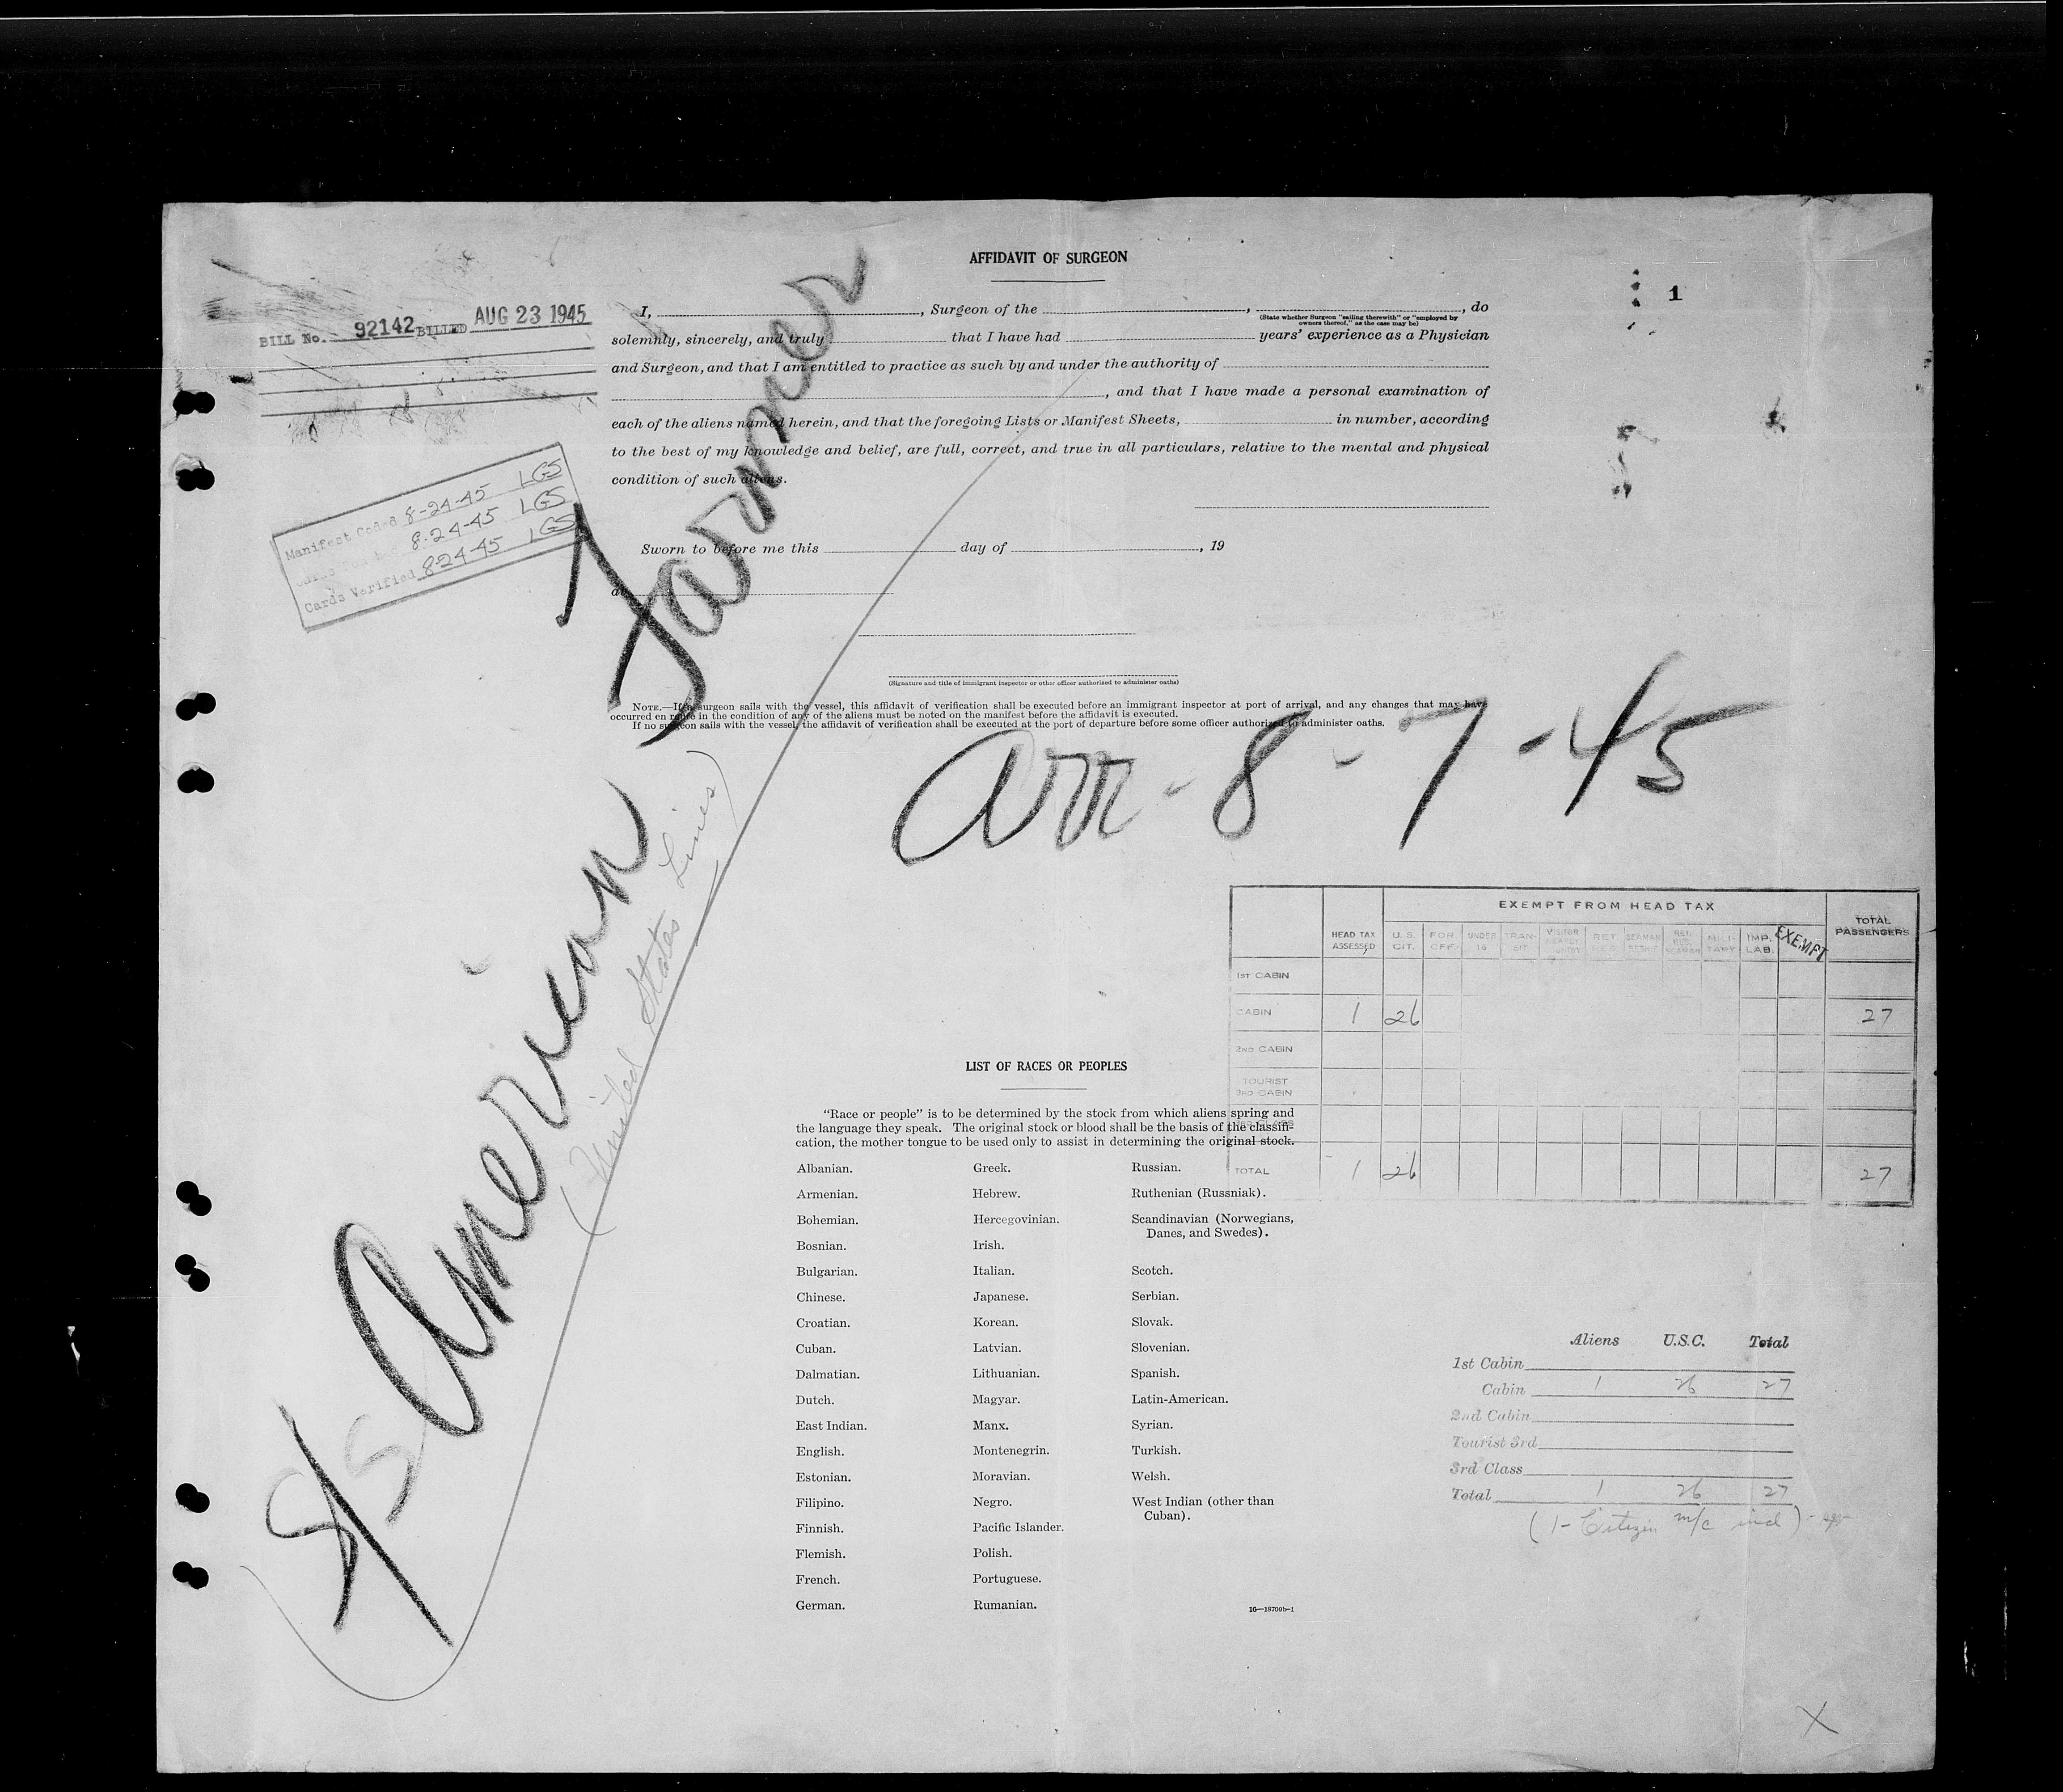 AFFIDAVIT OF SURGEON
1
BILL No. 92142 BILLED AUG 23 1945
I, , Surgeon of the , , do
(State whether Surgeon "sailing therewith" or "employed by
owners thereof," as the case may be)
solemnly, sincerely, and truly that I have had years' experience as a Physician
and Surgeon, and that I am entitled to practice as such by and under the authority of
, and that I have made a personal examination of
each of the aliens named herein, and that the foregoing Lists or Manifest Sheets, in number, according
to the best of my knowledge and belief, are full, correct, and true in all particulars, relative to the mental and physical
condition of such aliens.
Manifest Coded 8-24-45 LGS
Cards 8-24-45 LGS
Cards Verified 8-24-45 LGS
Sworn to before me this day of , 19
at
(Signature and title of immigrant inspector or other officer authorized to administer oaths)
NOTE.—If a surgeon sails with the vessel, this affidavit of verification shall be executed before an immigrant inspector at port of arrival, and any changes that may have
occurred en route in the condition of any of the aliens must be noted on the manifest before the affidavit is executed.
If no surgeon sails with the vessel, the affidavit of verification shall be executed at the port of departure before some officer authorized to administer oaths.
S/S American Farmer
(United States Lines)
arr - 8 - 7 - 45
EXEMPT FROM HEAD TAX
HEAD TAX ASSESSED U. S. CIT. FOR. OFF. UNDER 16 TRANSIT RET. MILITARY IMP. LAB. EXEMPT TOTAL PASSENGERS
1ST CABIN
CABIN 1 26 27
2ND CABIN
TOURIST
3RD CABIN
TOTAL 1 26 27
LIST OF RACES OR PEOPLES
"Race or people" is to be determined by the stock from which aliens spring and
the language they speak. The original stock or blood shall be the basis of the classifi-
cation, the mother tongue to be used only to assist in determining the original stock.
Albanian.
Armenian.
Bohemian.
Bosnian.
Bulgarian.
Chinese.
Croatian.
Cuban.
Dalmatian.
Dutch.
East Indian.
English.
Estonian.
Filipino.
Finnish.
Flemish.
French.
German.
Greek.
Hebrew.
Hercegovinian.
Irish.
Italian.
Japanese.
Korean.
Latvian.
Lithuanian.
Magyar.
Manx.
Montenegrin.
Moravian.
Negro.
Pacific Islander.
Polish.
Portuguese.
Rumanian.
Russian.
Ruthenian (Russniak).
Scandinavian (Norwegians,
Danes, and Swedes).
Scotch.
Serbian.
Slovak.
Slovenian.
Spanish.
Latin-American.
Syrian.
Turkish.
Welsh.
West Indian (other than
Cuban).
16—18709b-1
Aliens U.S.C. Total
1st Cabin
Cabin 1 26 27
2nd Cabin
Tourist 3rd
3rd Class
Total 1 26 27
(1 - Citizen m/c incl)
X